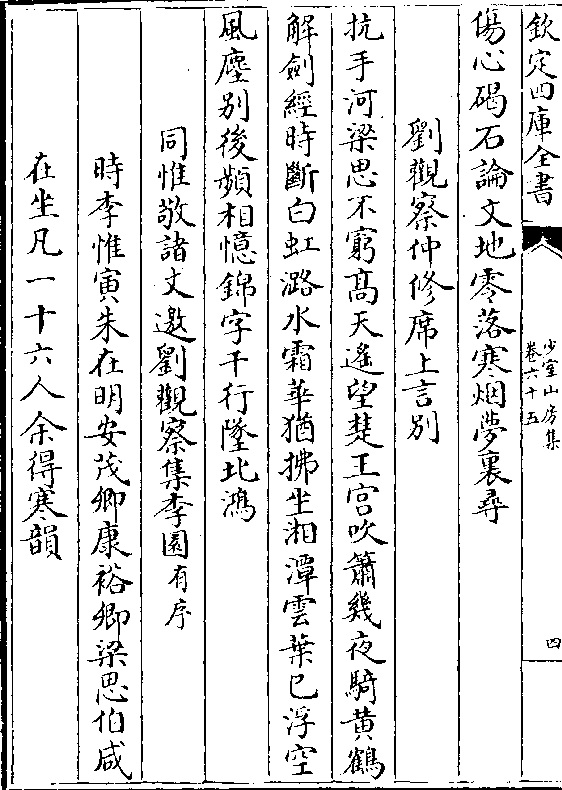 欽定四庫全書
少室山房集
卷六十五
四
傷心碣石論文地零落寒烟夢裏尋
劉觀察仲修席上言別
抗手河梁思不窮髙天遙望楚王宫吹簫幾夜騎黄鶴
解劍經時斷白虹潞水霜華猶拂坐湘潭雲葉已浮空
風塵别後頻相憶錦字千行墜北鴻
同惟敬諸丈邀劉觀察集李園有序
時李惟寅朱在明安茂卿康裕卿梁思伯咸
在坐凡一十六人余得寒韻